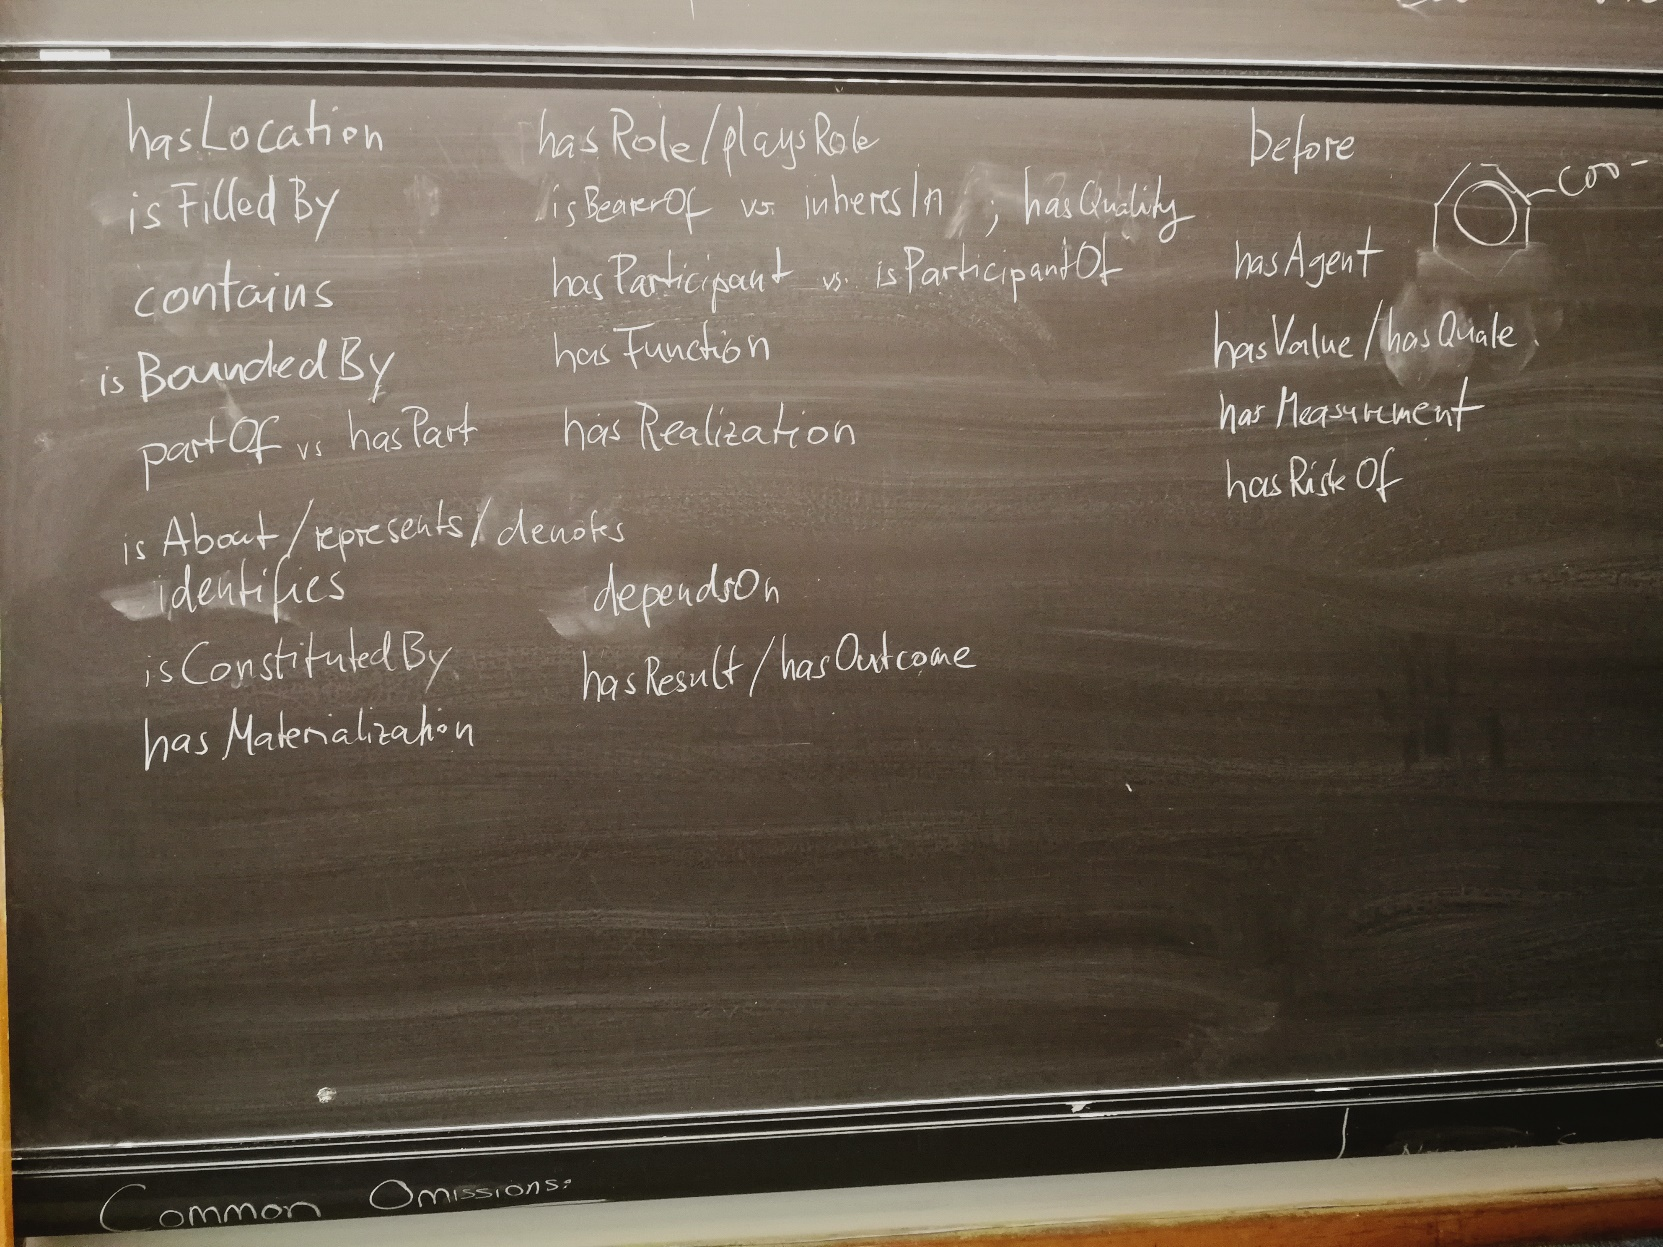 hasLocation
isFilledBy
contains
isBoundedBy
partOf vs hasPart
isAbout/represents/denotes
identifies
isConstitutedBy
hasMaterialization
hasRole/playsRole
isBearerOf vs. inheresIn ; hasQuality
hasParticipant vs. isParticipantOf
hasFunction
hasRealization
dependsOn
hasResult/hasOutcome
before
COO-
hasAgent
hasValue/hasQuale
hasMeasurement
hasRiskOf
Common Omissions: